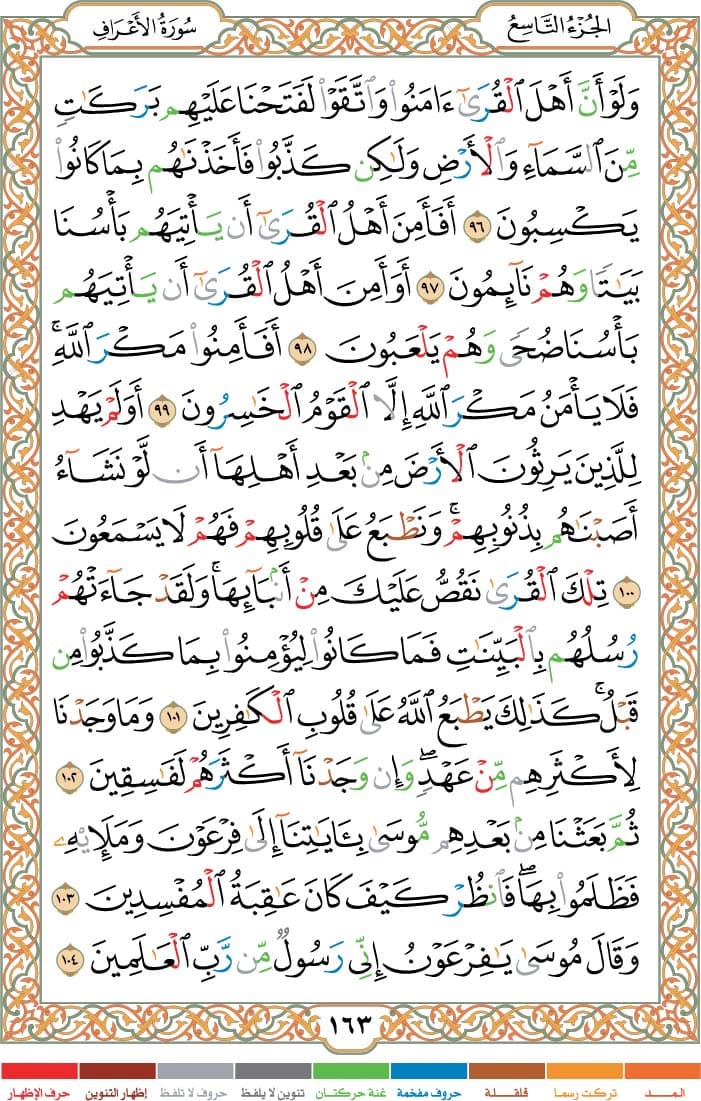 الجُزْءُ التَّاسِعُ
سُورَةُ الأَعْرَافِ
وَلَوْ أَنَّ أَهْلَ ٱلْقُرَىٰٓ ءَامَنُوا۟ وَٱتَّقَوْا۟ لَفَتَحْنَا عَلَيْهِم بَرَكَٰتٍ
مِّنَ ٱلسَّمَآءِ وَٱلْأَرْضِ وَلَٰكِن كَذَّبُوا۟ فَأَخَذْنَٰهُم بِمَا كَانُوا۟
يَكْسِبُونَ ٩٦ أَفَأَمِنَ أَهْلُ ٱلْقُرَىٰٓ أَن يَأْتِيَهُم بَأْسُنَا
بَيَٰتًا وَهُمْ نَآئِمُونَ ٩٧ أَوَأَمِنَ أَهْلُ ٱلْقُرَىٰٓ أَن يَأْتِيَهُم
بَأْسُنَا ضُحًى وَهُمْ يَلْعَبُونَ ٩٨ أَفَأَمِنُوا۟ مَكْرَ ٱللَّهِ ۚ
فَلَا يَأْمَنُ مَكْرَ ٱللَّهِ إِلَّا ٱلْقَوْمُ ٱلْخَٰسِرُونَ ٩٩ أَوَلَمْ يَهْدِ
لِلَّذِينَ يَرِثُونَ ٱلْأَرْضَ مِنۢ بَعْدِ أَهْلِهَآ أَن لَّوْ نَشَآءُ
أَصَبْنَٰهُم بِذُنُوبِهِمْ ۚ وَنَطْبَعُ عَلَىٰ قُلُوبِهِمْ فَهُمْ لَا يَسْمَعُونَ
١٠٠ تِلْكَ ٱلْقُرَىٰ نَقُصُّ عَلَيْكَ مِنْ أَنۢبَآئِهَا ۚ وَلَقَدْ جَآءَتْهُمْ
رُسُلُهُم بِٱلْبَيِّنَٰتِ فَمَا كَانُوا۟ لِيُؤْمِنُوا۟ بِمَا كَذَّبُوا۟ مِن
قَبْلُ ۚ كَذَٰلِكَ يَطْبَعُ ٱللَّهُ عَلَىٰ قُلُوبِ ٱلْكَٰفِرِينَ ١٠١ وَمَا وَجَدْنَا
لِأَكْثَرِهِم مِّنْ عَهْدٍ ۖ وَإِن وَجَدْنَآ أَكْثَرَهُمْ لَفَٰسِقِينَ ١٠٢
ثُمَّ بَعَثْنَا مِنۢ بَعْدِهِم مُّوسَىٰ بِـَٔايَٰتِنَآ إِلَىٰ فِرْعَوْنَ وَمَلَإِي۟هِۦ
فَظَلَمُوا۟ بِهَا ۖ فَٱنظُرْ كَيْفَ كَانَ عَٰقِبَةُ ٱلْمُفْسِدِينَ ١٠٣
وَقَالَ مُوسَىٰ يَٰفِرْعَوْنُ إِنِّى رَسُولٌ مِّن رَّبِّ ٱلْعَٰلَمِينَ ١٠٤
١٦٣
المـــد
تركت رسما
قلقـــلة
حروف مفخمة
غنة حركتان
تنوين لا يلفظ
حروف لا تلفظ
إظهار التنوين
حرف الإظهار